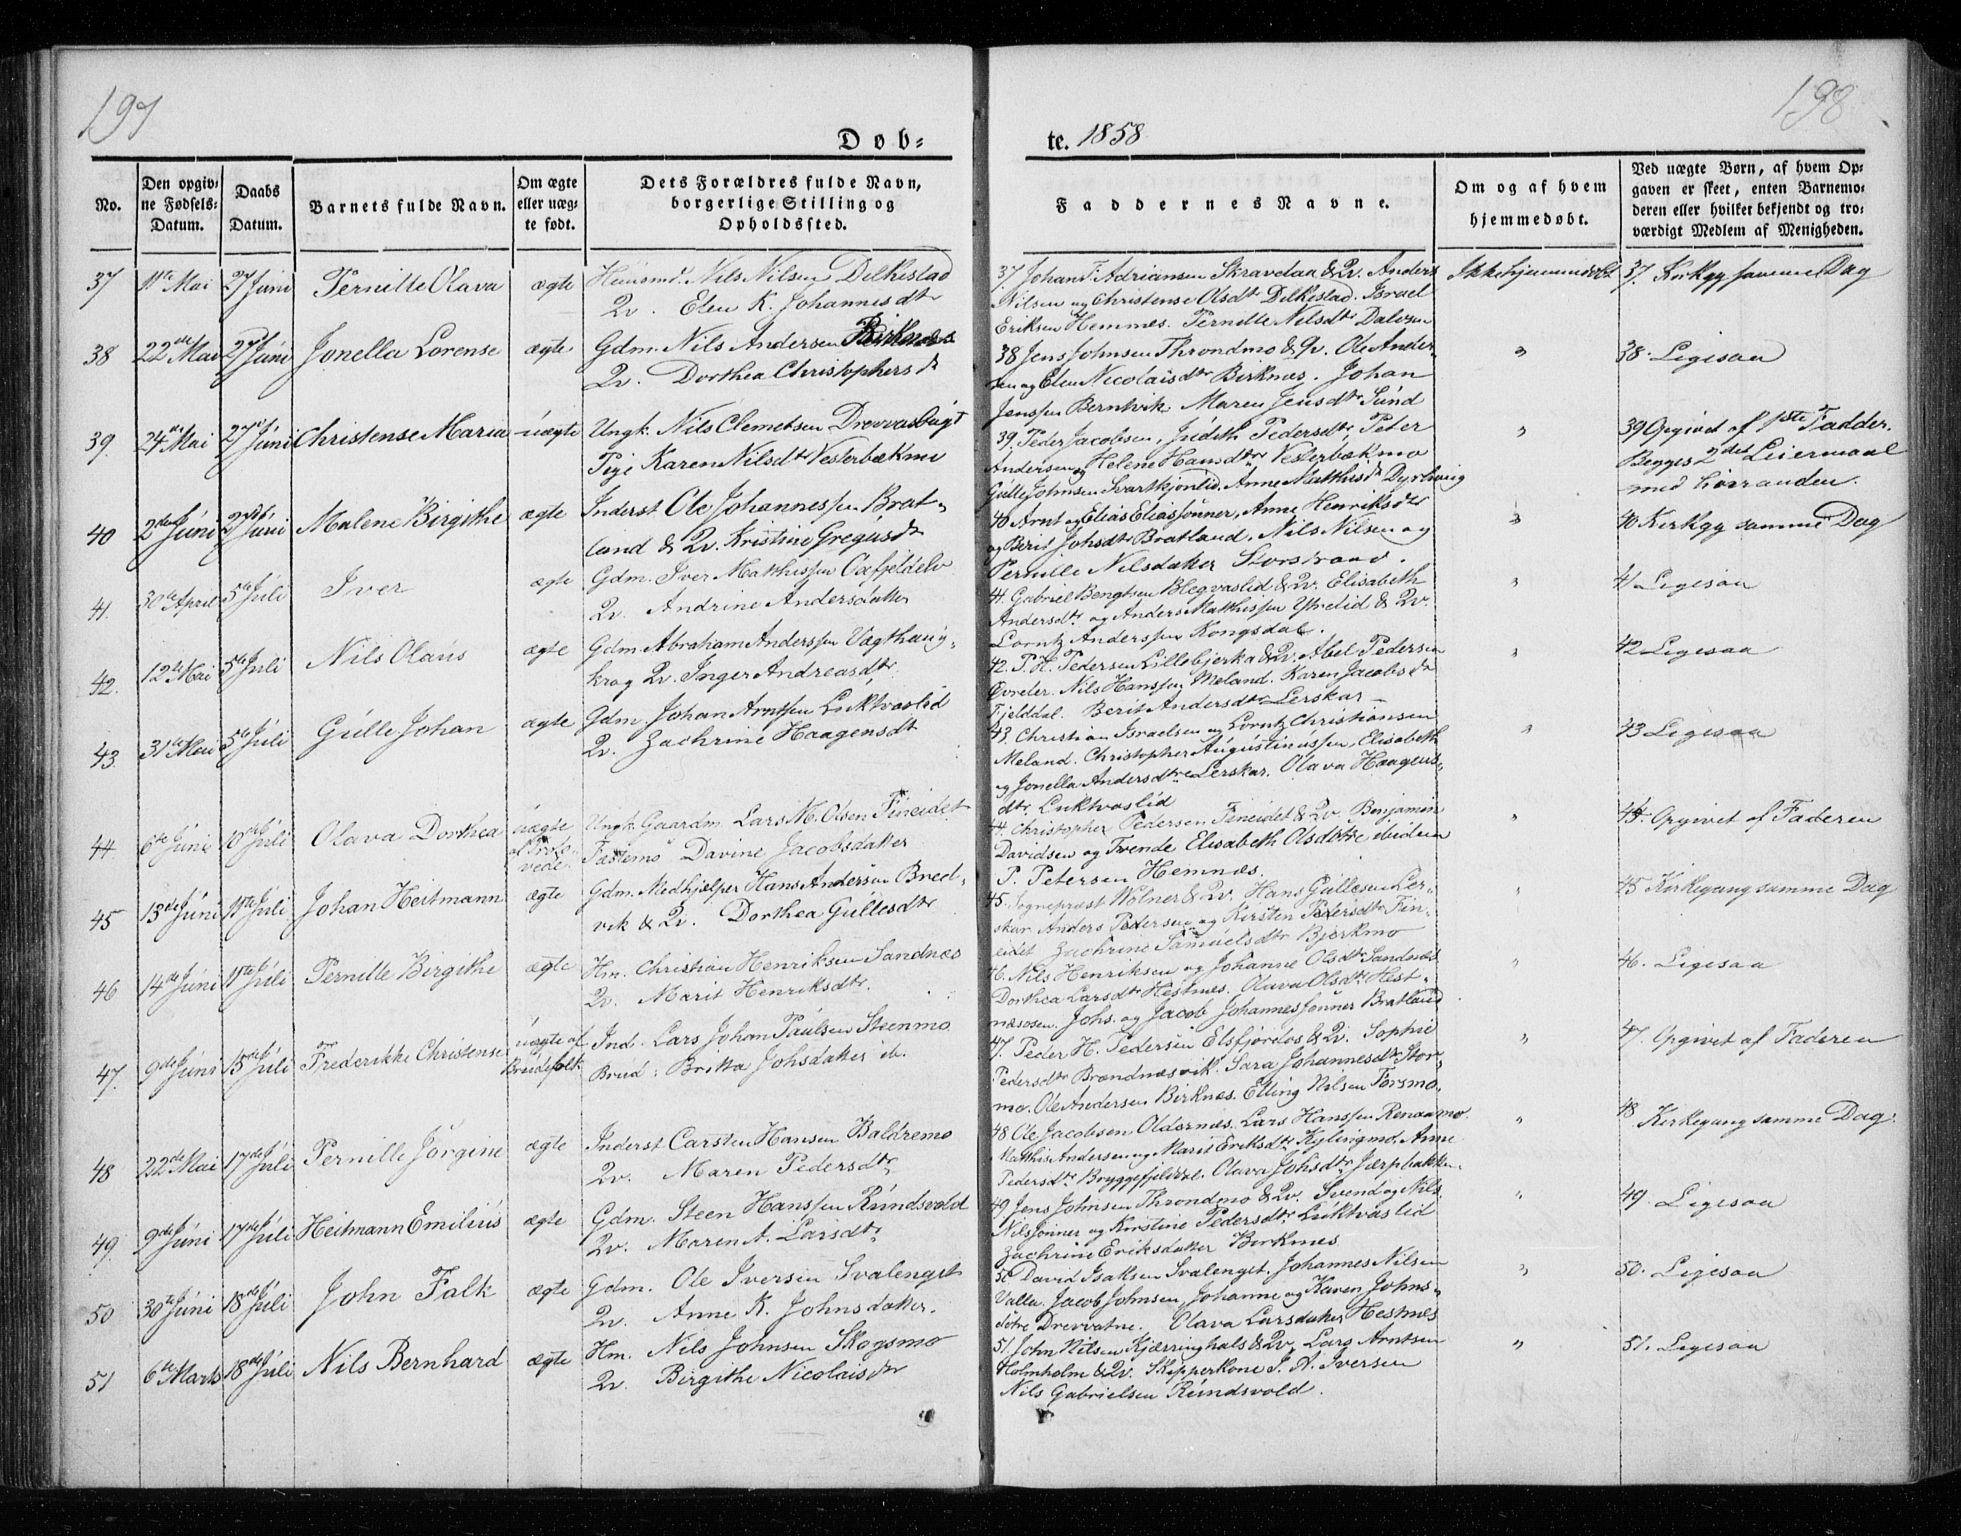 197
198
Døb-
te. 1858
No.
Den opgiv-
ne Fødsels-
Datum.
Daabs
Datum.
Barnets fulde Navn.
Om ægte
eller uæg-
te født.
Dets Forældres fulde Navn,
borgerlige Stilling og
Opholdssted.
Faddernes Navne.
Om og af hvem
hjemmedøbt.
Ved uægte Børn, af hvem Op-
gaven er skeet, enten Barnemo-
deren eller hvilket bekjendt og tro-
værdigt Medlem af Menigheden.
37 11te Mai 27 Juni Pernille Olava ægte Huusmd. Nils Nilsen Dilkestad
Qv. Elen K. Johannesdtr
37. Johan F. Adriansen Skravdaa & Qv. Anders
Nilsen og Christense Olsdtr Dilkestad. Israel
Eriksen Hemmes. Pernille Nilsdtr Dalosen
Ikke hjemmedøbt
37. Kirkeg samme Dag
38 22de Mai 27 Juni Jonella Lorense ægte Gdm. Nils Andersen Birknes
Qv. Dorthea Christophersdr
38 Jens Johnsen Throndmo & Qv. Ole Ander-
sen og Elen Nicolaisdtr Birknes. Johan
Jenssen Berntvik Maren Jensdtr Sund
"
38. Ligesaa
39. 24de Mai 27 Juni Christense Maria uægte Ungk. Nils Clemetsen Drevvas
Pige Karen Nilsdtr Vesterbækmo
39. Peder Jacobsen, Judith Pedersdtr, Peter
Andersen og Helene Hansdtr Vesterbækmo
Gulle Johnsen Svartkjønlid. Anne Matthisdr Dyrhoug
"
39 Opgivet af 1ste Fadder.
Begges 2det Leiermaal
med hinanden.
40 2den Juni 27 Juni Malene Birgithe ægte Inderst Ole Johannessen Brat-
land & Qv. Kristine Gregusdr
40 Arnt og Elias Eliassønner, Anne Henriksdr
og Berit Johsdtr Bratland. Nils Nilsen og
Pernille Nilsdaker Storstrand.
"
40. Kirkeg samme Dag
41. 30te April 5te Juli Iver ægte Gdm. Iver Matthissen Oxfjeldelv
Qv. Andrine Andersdaker
41. Gabriel Bengtsen Blegvaslid & Qv. Elisabeth
Andersdtr og Anders Matthissen Ytrelid & Qv.
Lorntz Anderssen Kongsdal.
"
41 Ligesaa
42. 12te Mai 5te Juli Nils Olaus ægte Gdm Abraham Anderssen Vagthaug-
krog Qv. Inger Andreasdtr
42. P. H. Pedersen Lillebjerka & Qv. Abel Pedersen
Øvreler. Nils Hanssen Meland. Karen Jacobsdr
Fjelddal. Berit Andersdtr Lerskar
"
42 Ligesaa
43. 31te Mai 5te Juli Gulle Johan ægte Gdm. Johan Arntsen Luktvaslid
Qv. Zachrine Haagensdt
43. Christian Israelsen og Lorntz Christiansen
Meland. Christopher Augustinussen, Elisabeth
og Jonella Andersdtre Lerskar. Olava Haagens-
dtr Luktvaslid
"
43 Ligesaa
44. 6te Juni 10de Juli Olava Dorthea uægte
af Trolo-
vede. Ungk. Gaardm. Lars M. Olsen Fineidet
Fæstemø Davine Jacobsdaker
44. Christopher Pedersen Fineidet & Qv. Benjamin
Davidsen og Trende Elisabeth Olsdtre
P. Petersen Hemnæs.
"
44. Opgivet af Faderen
45 13de Juni 11te Juli Johan Heitmann ægte Gdm. Medhjælper Hans Andersen Bred-
vik & Qv. Dorthea Gullesdtr
45. Sogneprest Wolner & Qv. Hans Gullesen Ler-
skar Anders Pedersen og Kirsten Pedersdtr Fin-
eidet Zachrine Samuelsdtr Bjerkmo
"
45 Kirkegang samme Dag
46 14de Juni 11te Juli Pernille Birgithe ægte Hm. Christian Henriksen Sandnæs
Qv. Marit Henriksdtr.
46. Nils Henriksen og Johanne Olsdtr Sandnæs
Dorthea Larsdtr Hestnes. Olava Olsdtr Hest-
næsosen. Johs. og Jacob Johannessønner Bratland
"
46. Ligesaa
47. 9de Juni 15de Juli Frederikke Christense uægte af
Brudefolk Ind. Lars Johan Paulsen Steenmo
Brud: Britta Johsdaker ib.
47. Peder H. Pedersen Elsfjordos & Qv. Sophie
Pedersdtr Brændnæsvik. Sara Johannesdtr Stor-
mo. Ole Andersen Birknes. Elling Nilsen Forsmo
"
47. Opgivet af Faderen
48 22de Mai 17de Juli Pernille Jørgine ægte Inderst Carsten Hansen Baldremo
Qv. Maren Pedersdtr
48 Ole Jacobsen Oldernes. Lars Hanssen Renaamo.
Matthis Andersen og Marit Eriksdtr Kylingmo. Anne
Pedersdtr Bryggefjelddal. Olava Johsdtr Jærpbakken.
"
48 Kirkegang samme Dag.
49. 9de Juni 17de Juli Heitmann Emilius ægte Gdm. Steen Hanssen Rundsvold
Qv. Maren A. Larsdtr
49 Jens Johnsen Throndmo & Qv. Svend og Nils
Nilssønner og Kirstine Pedersdtr Luktvaslid
Zachrine Eriksdaker Birknes
"
49. Ligesaa
50 30te Juni 18de Juli John Falk ægte Gdm. Ole Iversen Svalenget
Qv. Anne K. Johnsdaker.
50 David Isaksen Svalenget. Johannes Nilsen
Valla. Jacob Johnsen, Johanne og Karen Johns-
døtre Drevvatne. Olava Larsdaker Hestnes
"
50. Ligesaa
51 6te Marts 18de Juli Nils Bernhard ægte Hm. Nils Johnsen Skogsmo
Qv. Birgithe Nicolaisdtr
51. John Nilsen Kjærringhals & Qv. Lars Arntsen
Holmholm & Qv. Skipperkone J. A. Iversen
Nils Gabrielsen Rundsvold.
"
51. Ligesaa